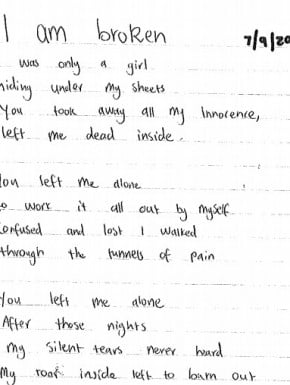 I am broken
7/9/20
was only a girl
hiding under my sheets
You took away all my Innocence,
left me dead inside.
You left me alone
to work it all out by myself
Confused and lost I walked
through the tunnels of pain
You left me alone
After those nights
my silent tears never heard
My roar inside left to burn out